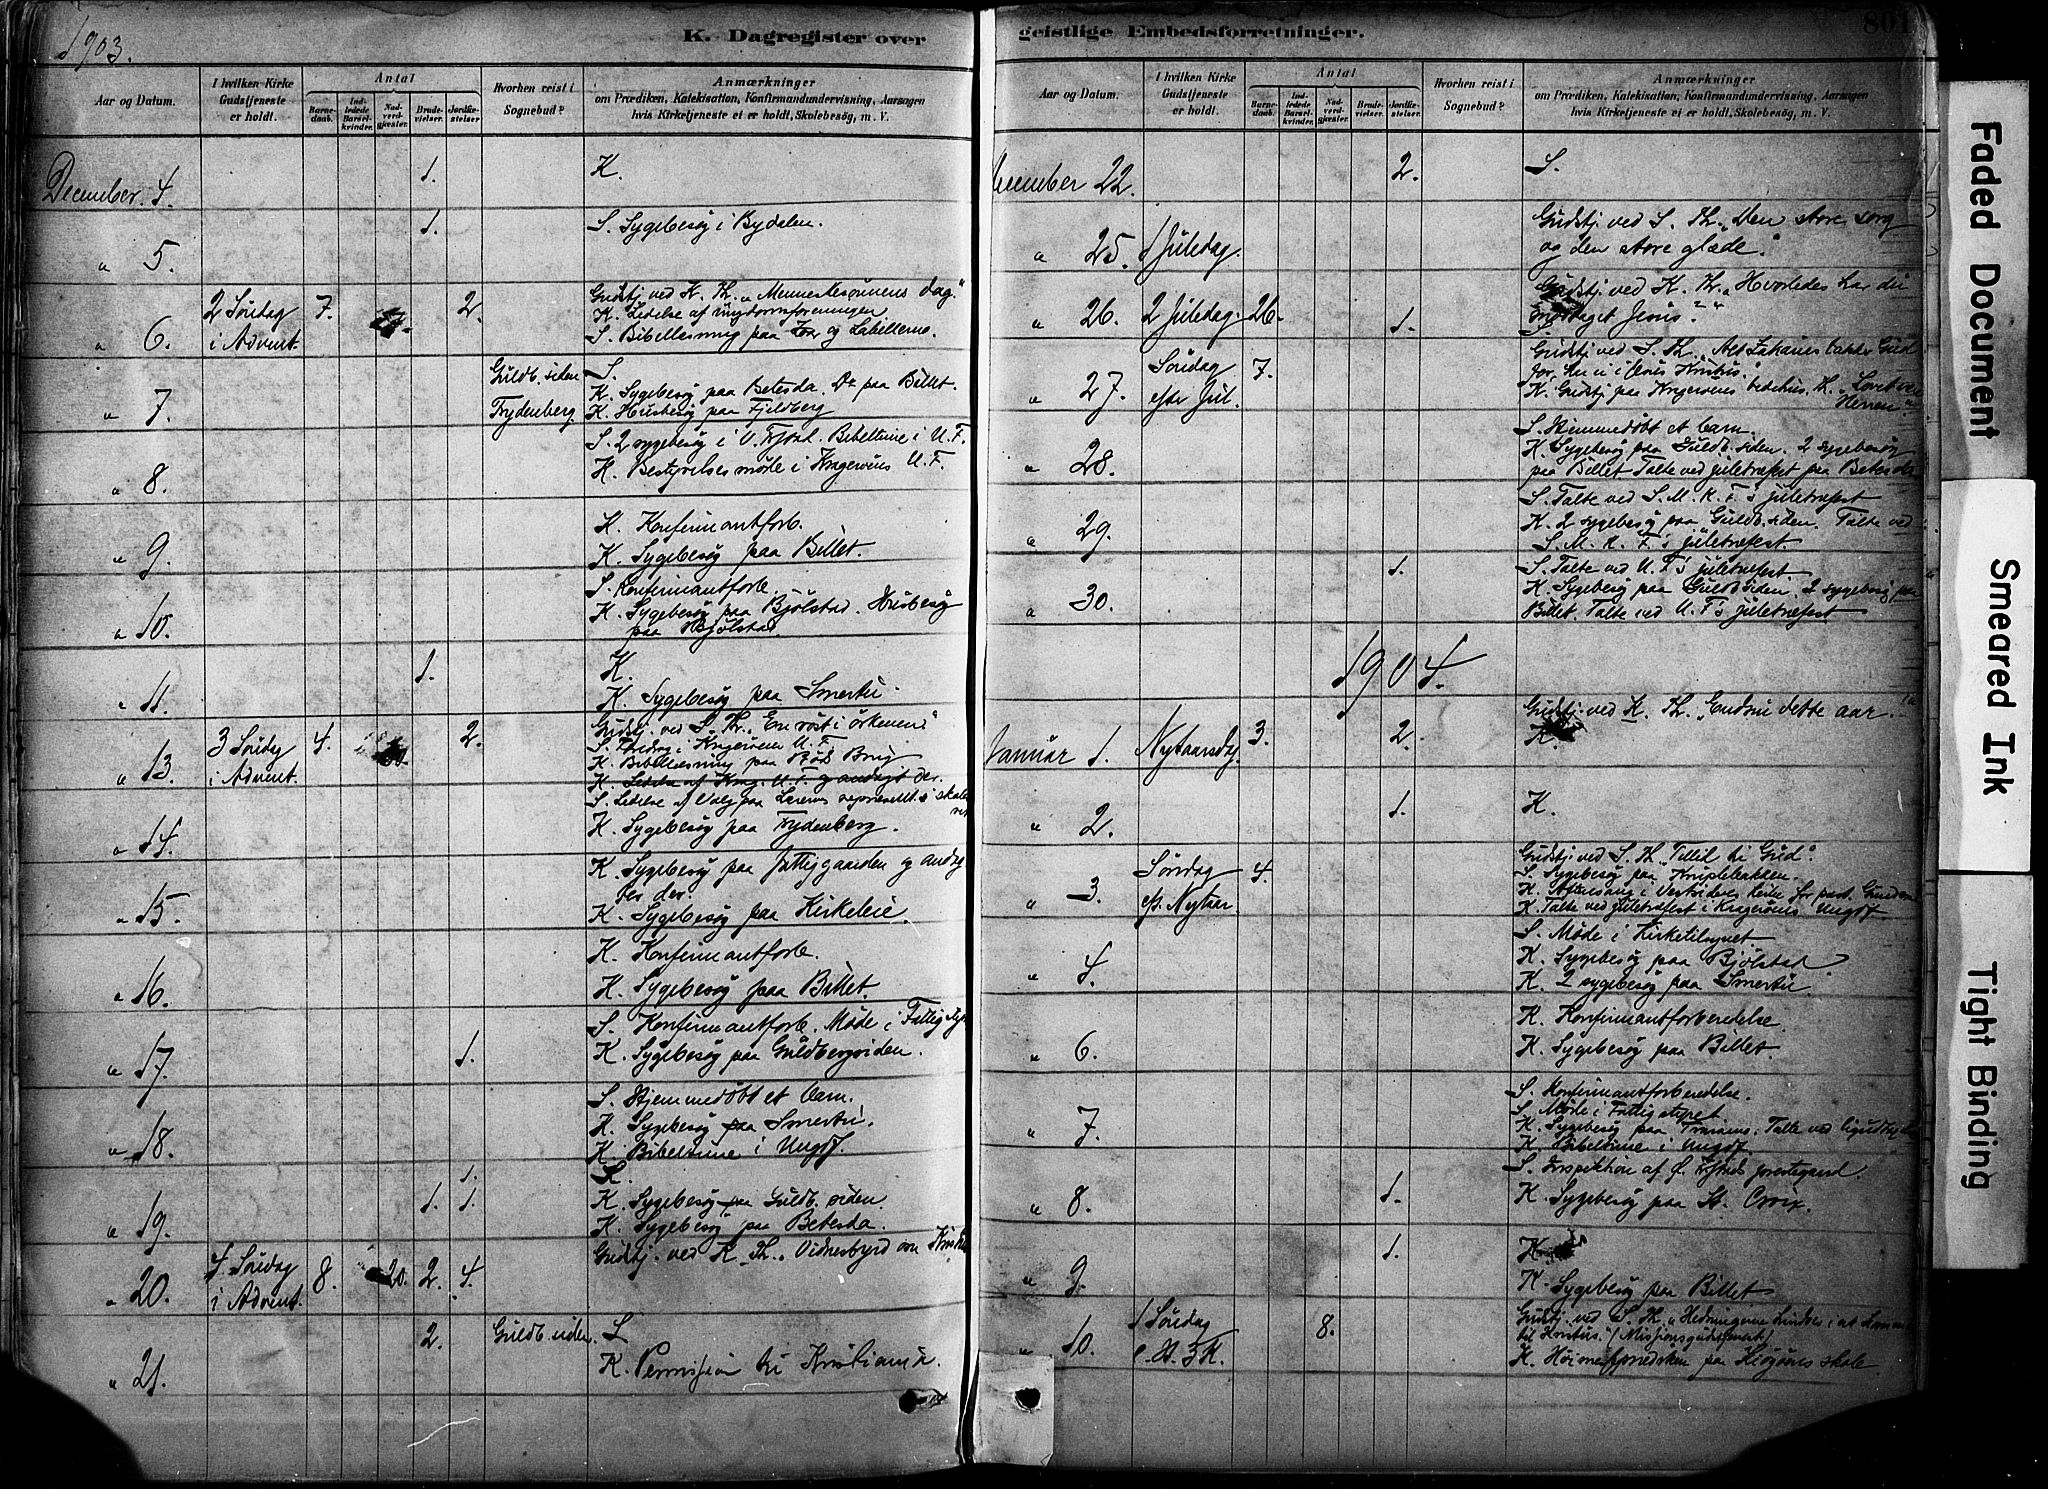 1903.
K. Dagregister over
Aar og Datum.
I hvilken Kirke Gudstjeneste er holdt.
Antal
Barnedaab.
Indledede Barselkvinder.
Nadverdgjæster.
Brudevielser.
Jordfæstelser
Hvorhen reist i Sognebud?
Anmærkninger
om Prædiken, Katekisation, Konfirmandundervisning, Aarsagen
hvis Kirketjeneste ei er holdt, Skolebesög, m. V.
December 4. 1. K.
" 5. 1. S. Sygebesög i Bydalen.
" 6. 2 Söndag i Advent. 7. 2. Gudstj. ved K. Th. "Menneskesönnens dag."
K. Ledelse af ungdomsforeningen
S. Bibellæsning paa og Labellerne.
" 7. Guldb. siden
Frydenberg. S.
K. Sygebesög paa Betesda. Do paa Billet.
K. Husbesög paa Fjeldberg
" 8. S. 2 sygebesög i Bibeltime i U. F.
K. Bestyrelsesmöde i Kragerøens U. F.
" 9. K. Konfirmantforb.
K. Sygebesög paa Billet.
" 10. S. Konfirmantforb.
K. Sygebesög paa Bjölstad. Husbesög
paa Bjölstad.
" 11. 1. K.
K. Sygebesög paa Smertu.
" 13. 3 Söndag i Advent. 4. 2. Gudstj. ved S. Th. En röst i örkenen."
S. Foredrag i Kragerøens U. F.
K. Bibellæsning paa Brug
K. Ledelse af Krag. U. F. og andagt der.
" 14. S. Ledelse af Valg paa Lærernes
K. Sygebesög paa Frydenberg.
" 15. K. Sygebesög paa fattiggaarden og andag
tes der.
K. Sygebesög paa Kirkeleie.
" 16. K. Konfirmantforb.
K. Sygebesög paa Billet.
" 17. 1. S. Konfirmantforb. Möde i Fattig
K. Sygebesög paa Guldbergsiden.
" 18. S. Hjemmedöbt et barn.
K. Sygebesög paa Smertu.
K. Bibeltime i Ungdf.
" 19. 1. 1. 1. S.
K. Sygebesög paa Guldb. siden
K. Sygebesög paa Betesda.
" 20. 4 Söndag i Advent. 8. 20. 2. 4. Gudstj. ved K. Th. "Vidnesbyrd om
" 21. 2. Guldb. siden. S.
K. Permission til Kristiania.
geistlige Embedsforretninger.
801
Aar og Datum.
I hvilken Kirke Gudstjeneste er holdt.
Antal
Barnedaab.
Indledede Barselkvinder.
Nadverdgjæster.
Brudevielser.
Jordfæstelser
Hvorhen reist i Sognebud?
Anmærkninger
om Prædiken, Katekisation, Konfirmandundervisning, Aarsagen
hvis Kirketjeneste ei er holdt, Skolebesög, m. V.
December 22. 2. S.
" 25. 1 Juledag. Gudstj. ved S. Th. "Den store sorg
og den store glæde."
" 26. 2 Juledag. 26. 1. Gudstj. ved K. Th. "Hvorledes har du
modtaget Jesus?"
" 27. Söndag efter Jul. 7. Gudstj. ved S. Th.
K. Gudstj. paa Kragerøens bedehus. Th. "Lovet være
Herren".
" 28. S. Hjemmedöbt et barn.
K. Sygebesög paa Guldb. siden. 2 sygebesög
paa Billet. Talte ved juletræfest paa Betesda
" 29. S. Talte ved S. M. K. F's juletræfest
K. 2 sygebesög paa Guldb. siden. Talte ved
S. M. K. F's juletræfest.
" 30. 1. S. Talte ved U. F's juletræfest.
K. Sygebesög paa Guldb. siden. 2 sygebesög paa
Billet. Talte ved U. F's juletræfest
1904.
Januar 1. Nytaarsdag. 3. 2. Gudstj. ved K. Th. "Endnu dette aar."
K.
" 2. 1. K.
" 3. Söndag ef. Nytaar. 4. Gudstj. ved S. Th. "Tillid til Gud".
S. Sygebesög paa Kriplebakken.
K. Aftensang i
K. Talte ved juletræfest i Kragerøens Ungdf
" 4. S. Möde i Kirketilsynet.
K. Sygebesög paa Bjölstad.
K. 2 sygebesög paa Smertu.
" 6. K. Konfirmantforberedelse.
K. Sygebesög paa Billet.
" 7. S. Konfirmantforberedelse.
S. Möde i Fattigstyret
K. Sygebesög paa Talte ved
K. Bibeltime i Ungdf.
" 8. 1. S. Inspektion af præstegaard.
K. Sygebesög paa St. Croix.
" 9. 1. K
K. Sygebesög paa Billet
" 10. 1 Söndag e. H. 3 K. 8. Gudstj. ved S. Th. "Hedningerne
til Kristus."
K. paa skole
Faded Document
Smeared Ink
Tight Binding